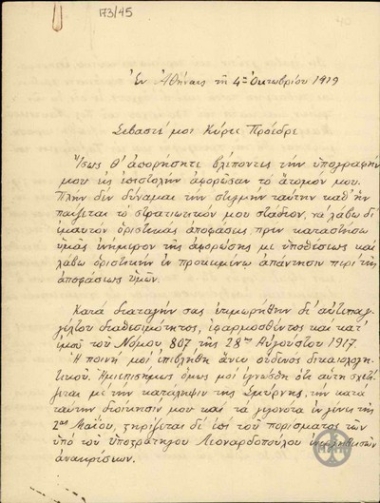 173/45
Ἐν Ἀθήναις τῇ 4ῃ Ὀκτωβρίου 1919
Σεβαστέ μοι Κύριε Πρόεδρε
Ἴσως θ' ἀπορήσητε βλέποντες τὴν ὑπογραφήν
μου εἰς ἐπιστολὴν ἀφορῶσαν τὸ ἄτομόν μου.
Πλὴν δὲν δύναμαι τὴν στιγμὴν ταύτην καθ' ἣν
παίζεται τὸ στρατιωτικόν μου στάδιον, νὰ λάβω δι'
ἐμαυτὸν ὁριστικὰς ἀποφάσεις πρὶν καταστήσω
ὑμᾶς ἐνήμερον τῆς ἀφορώσης με ὑποθέσεως καὶ
λάβω ὁριστικὴν ἐν προκειμένῳ ἀπάντησιν περὶ τῆς
ἀποφάσεως ὑμῶν.
Κατὰ διαταγήν σας ἐτιμωρήθην δι' αὐτεπαγ-
γέλτου διαθεσιμότητος, ἐφαρμοσθέντος καὶ κατ'
ἐμοῦ τοῦ Νόμου 807 τῆς 28ης Αὐγούστου 1917.
Ἡ ποινή μοι ἐπεβλήθη ἄνευ οὐδενὸς δικαιολογ-
ητικοῦ. Ἡμιεπισήμως ὅμως μοὶ ἐγνώσθη ὅτι αὕτη σχετί-
ζεται μὲ τὴν κατάληψιν τῆς Σμύρνης, τὴν κατὰ
ταύτην διοίκησίν μου καὶ τὰ γεγονότα ἐν γένει τῆς
2ας Μαΐου, στηρίζεται δὲ ἐπὶ τοῦ πορίσματος τῶν
ὑπὸ τοῦ ὑποστρατήγου Λεοναρδοπούλου
ἀνακρίσεων.